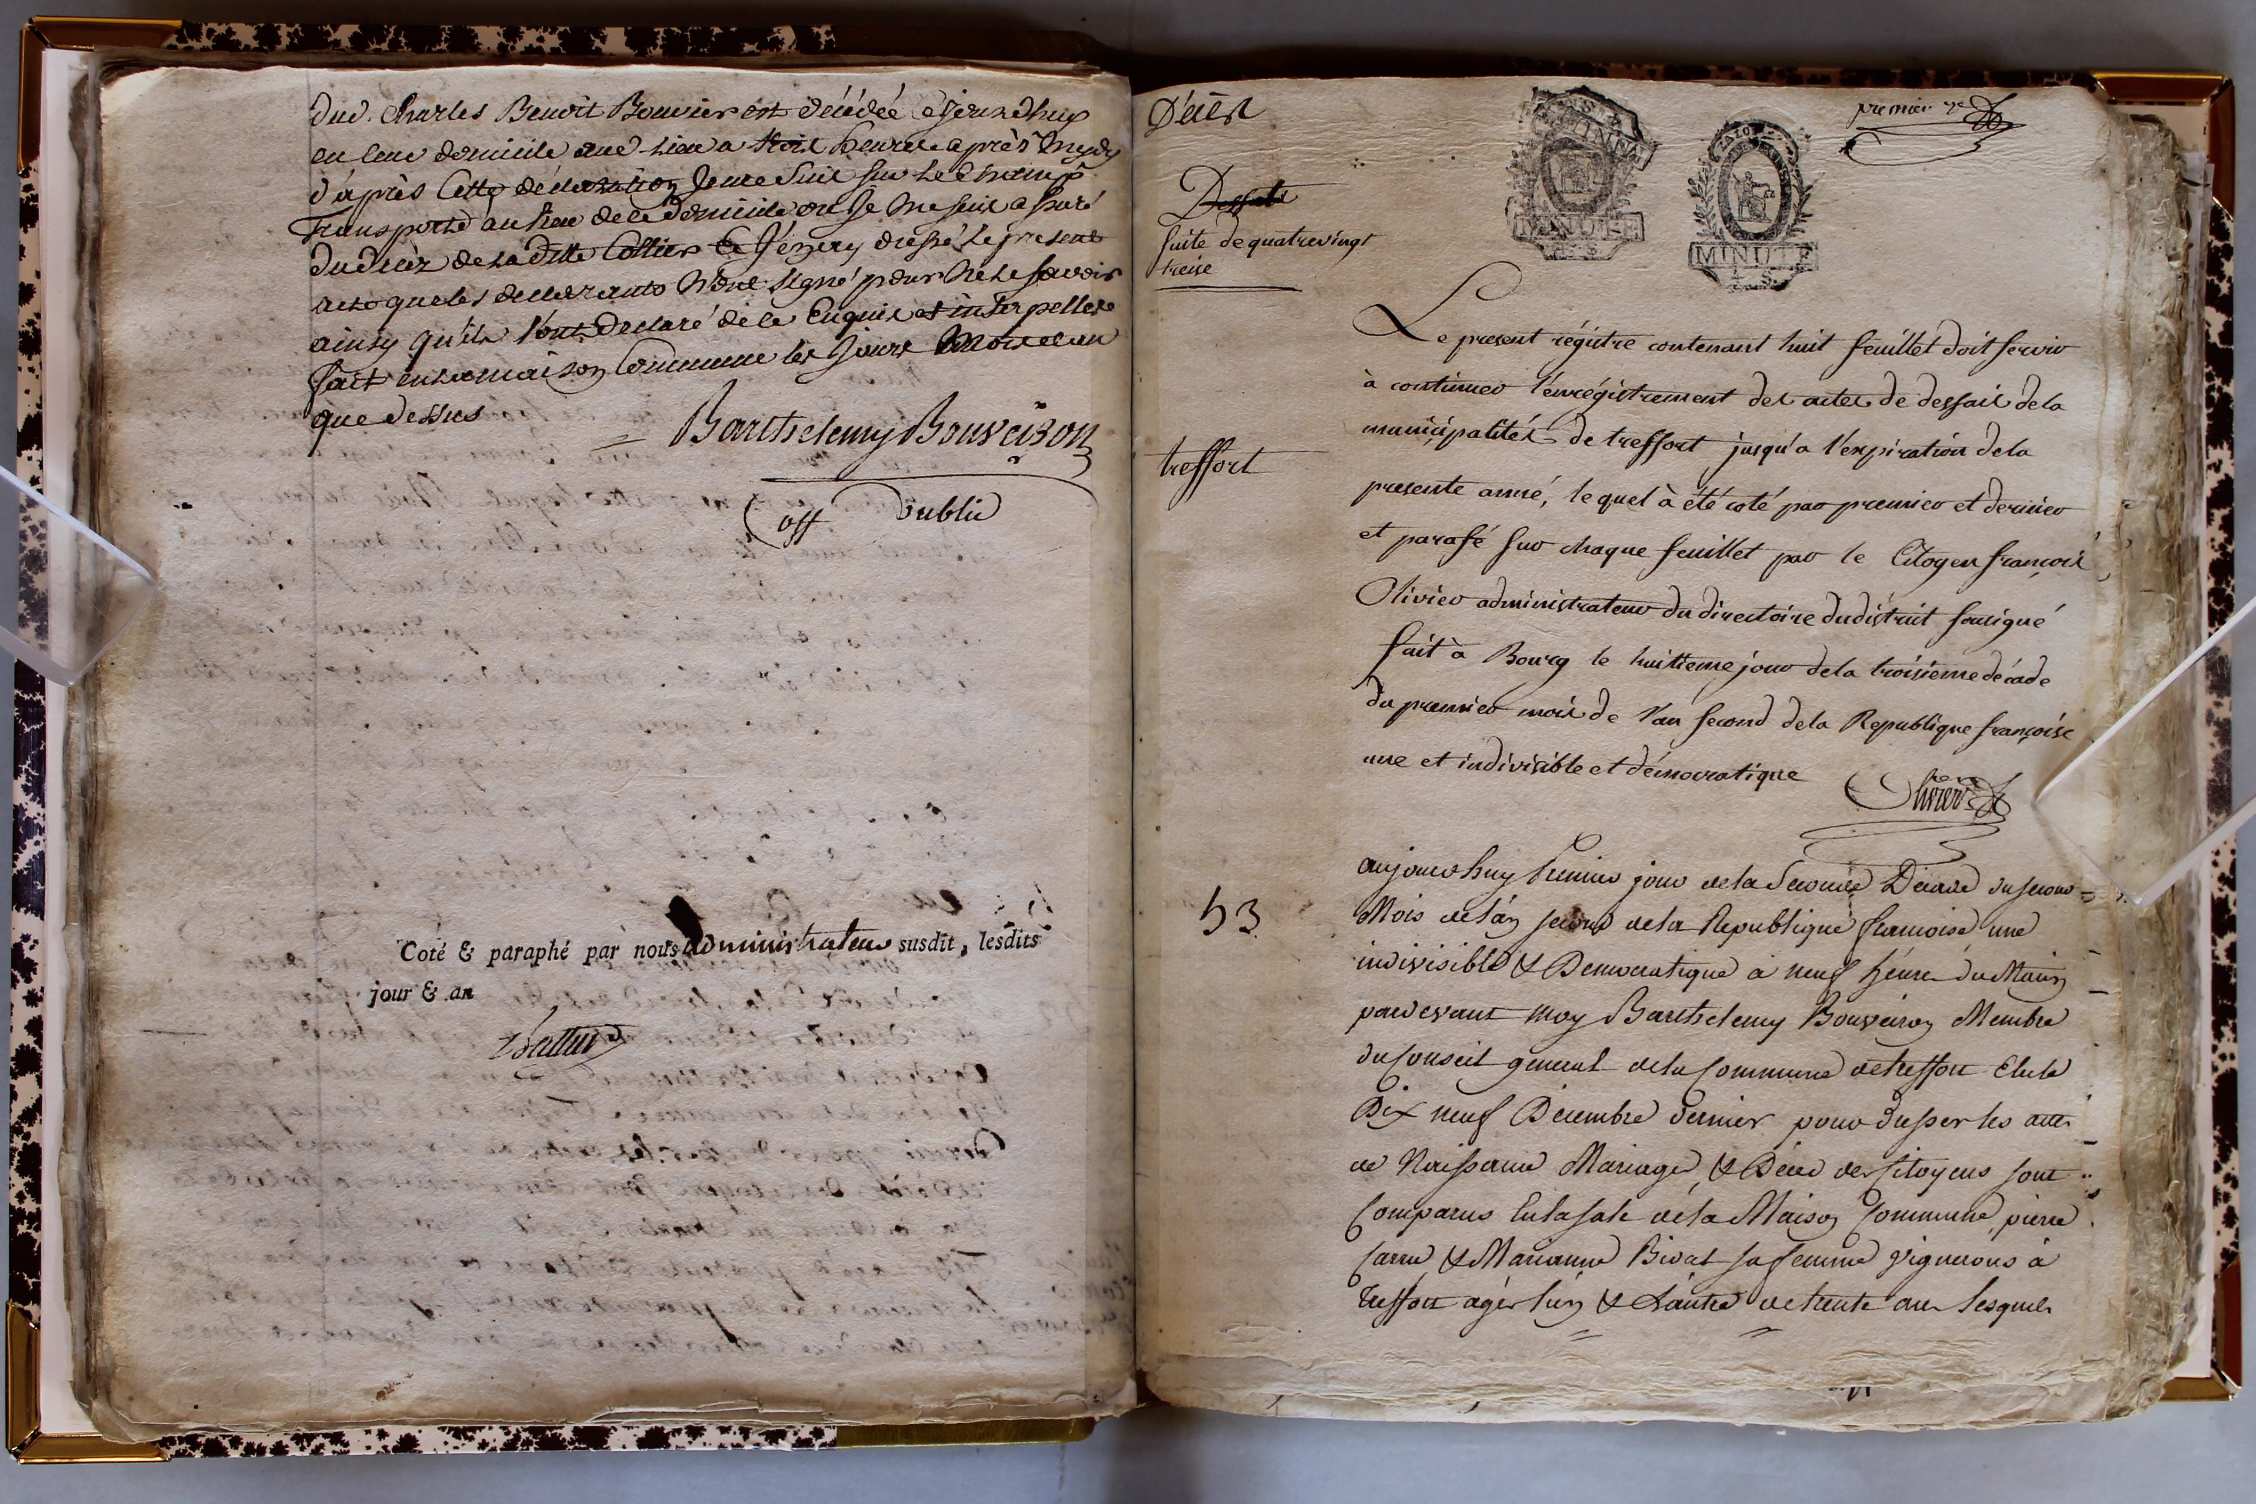 dud. Charles Benoît Bouvier est décédée ce jourdhuy
en leur domicile aud. lieu a trois heures après Mydy
d'après Cette déclaration Jeme suis sur le champ
Transporté au lieu de ce domicile ou Je me suis assuré
du décéz de la ditte Collier et J'en ay dressé le présent
acte que les déclarants n'ont signé pour ne le savoir
ainsy qu'ils l'ont déclaré de ce Enquis et interpellés
fait en la maison Commune les Jours Mois et an
que dessus
Barthelemy Bouveiron
off Public
Coté & paraphé par nous administrateur susdit, lesdits
jour & an
Décès
Dessais
suite de quatrevingt
treise
treffort
53
premier
MINUTE
MINUTE
4. S.
Le present régistre contenant huit feuillet doit servir
à continuer l'enrégistrement des actes de dessais dela
municipalités de treffort jusqu'a l'expiration dela
presente anné, le quel à été coté par premier et dernier
et parafé sur chaque feuillet par le Citoyen françois
Olivier administrateur du directoire du district sousigné
fait à Bourg le huitieme jour dela troisieme décade
du premier mois de l'an second dela Republique françoise
une et indivisible et démocratique
Olivier
aujourdhuy Premier jour de la Seconde Décade du second
Mois de l'an second de la Republique francoise une
indivisible & Democratique à neuf héure du Matin
pardevant moy Barthelemy Bouveiron Membre
du Conseil general de la Commune de treffort Elu le
Dix neuf Décembre dernier pour dresser les actes
de Naissance Mariage, & Décès des Citoyens sont
Comparus En la sale de la Maison Commune, pierre
Carru & Marianne Bivat sa femme vignerons à
treffort agés l'un & L'autre de trente ans lesquels